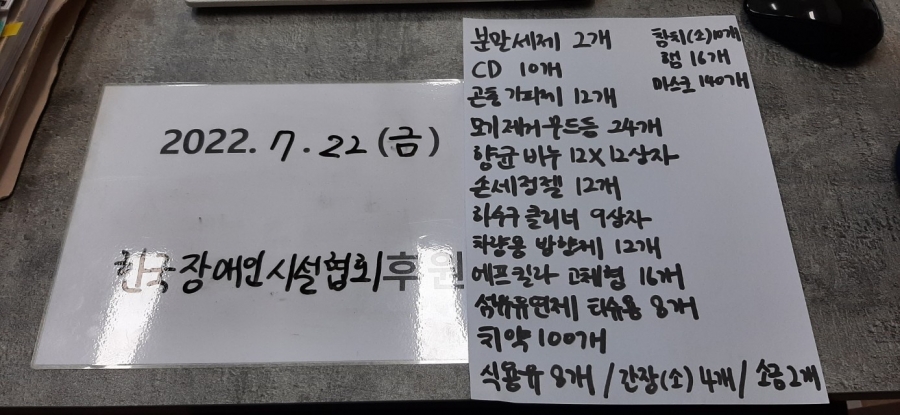 2022. 7. 22 (금)
한국장애인시설협회후원
분말세제 2개
CD 10개
곤충기피제 12개
모기제거무드등 24개
향균비누 12X12상자
손세정젤 12개
하수구클리너 9상자
차량용 방향제 12개
에프킬라 고체형 16개
섬유유연제 티슈용 8개
치약 100개
식용유 8개 / 간장(소) 4개 / 소금 2개
참치(소) 10개
햄 16개
마스크 140개